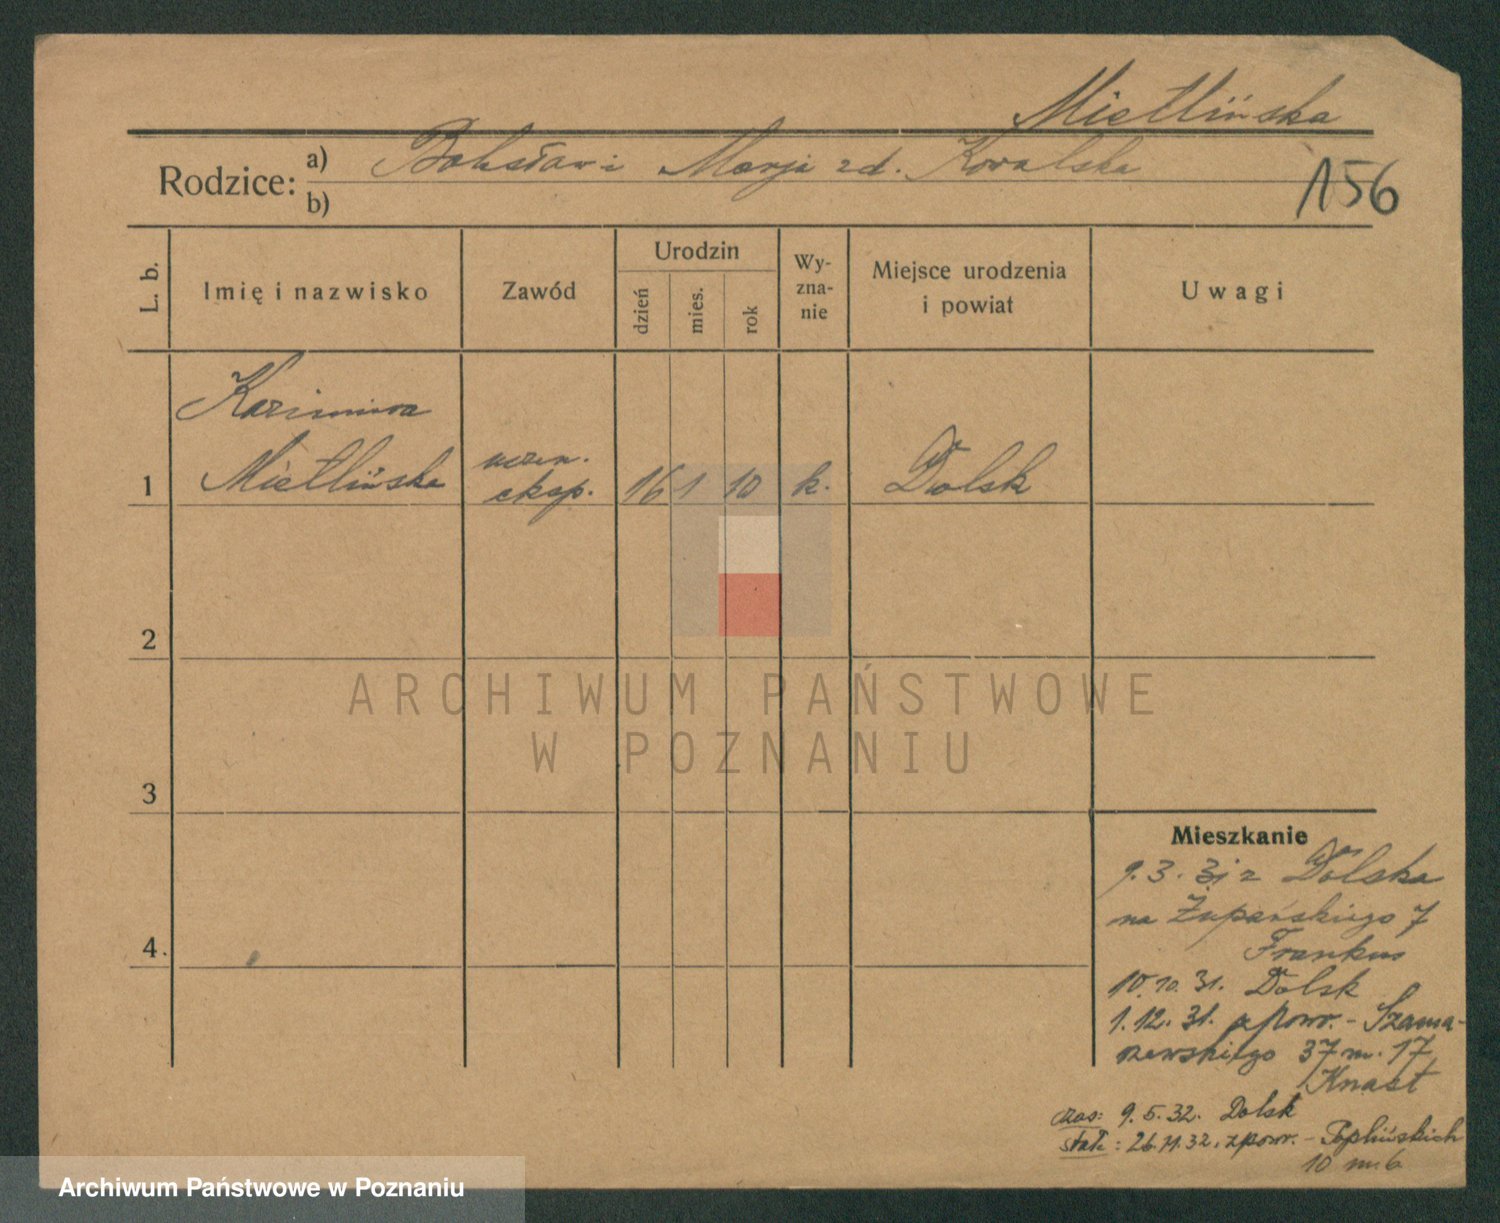 Mietlińska
Rodzice: a) Bolesław i Marja zd. Kowalska
b)
156
L. b.
Imię i nazwisko
Zawód
Urodzin
dzień
mies.
rok
Wy-
zna-
nie
Miejsce urodzenia
i powiat
Uwagi
Kazimiera
1 Mietlińska uczen. eksp. 16 1 10 k. Dolsk
2
3
4.
ARCHIWUM PAŃSTWOWE
W POZNANIU
Mieszkanie
9.3.31 z Dolska
na Żupańskiego 7
Frankus
10.10.31. Dolsk
1.12.31. z pow. - Szama-
rzewskiego 37 m. 17
Knast
czas: 9.5.32. Dolsk
stałe: 26.11.32. z pow. - Poplińskich
10 m. 6
Archiwum Państwowe w Poznaniu